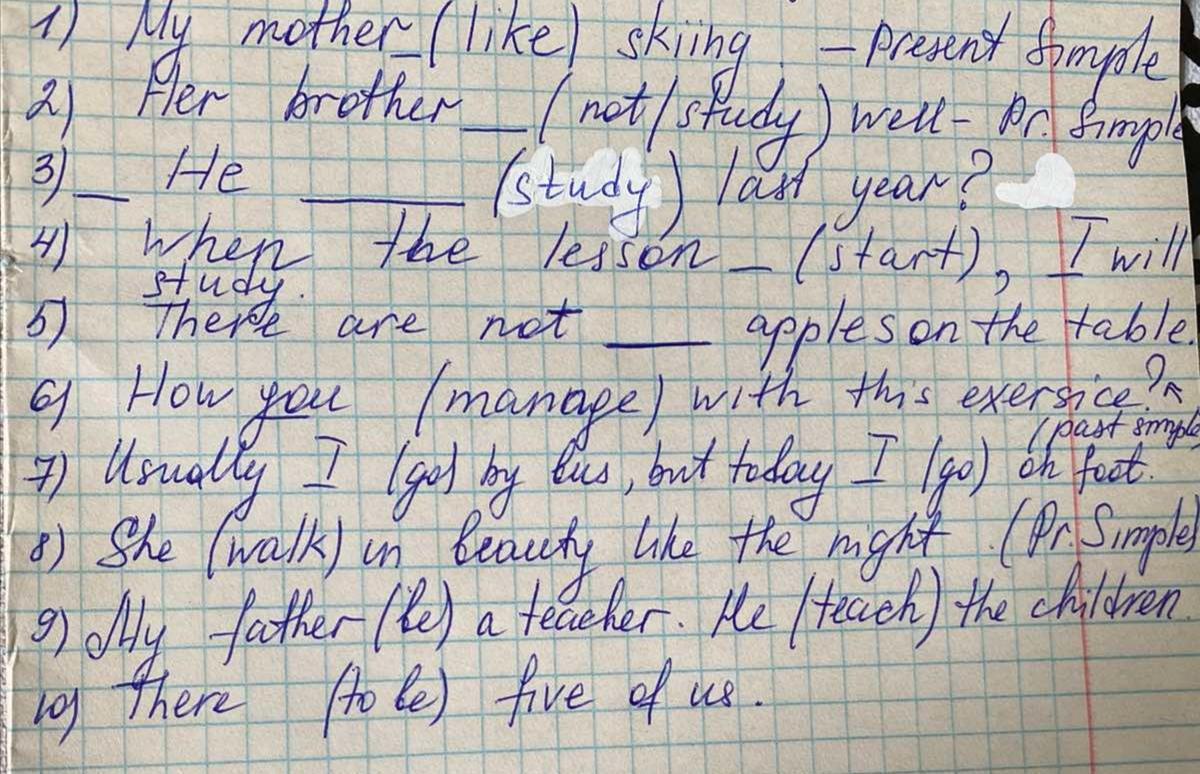 1) My mother _ (like) skiing. – Present Simple
2) Her brother __ (not/study) well – Pr. Simple
3) __ He ______ (study) last year?
4) When the lesson _ (start), I will
study.
5) There are not ____ apples on the table.
6) How you (manage) with this exersice?
(past simple
7) Usually I (go) by bus, but today I (go) on foot.
8) She (walk) in beauty like the night. (Pr. Simples
9) My father (be) a teacher. He (teach) the children.
10) There (to be) five of us.